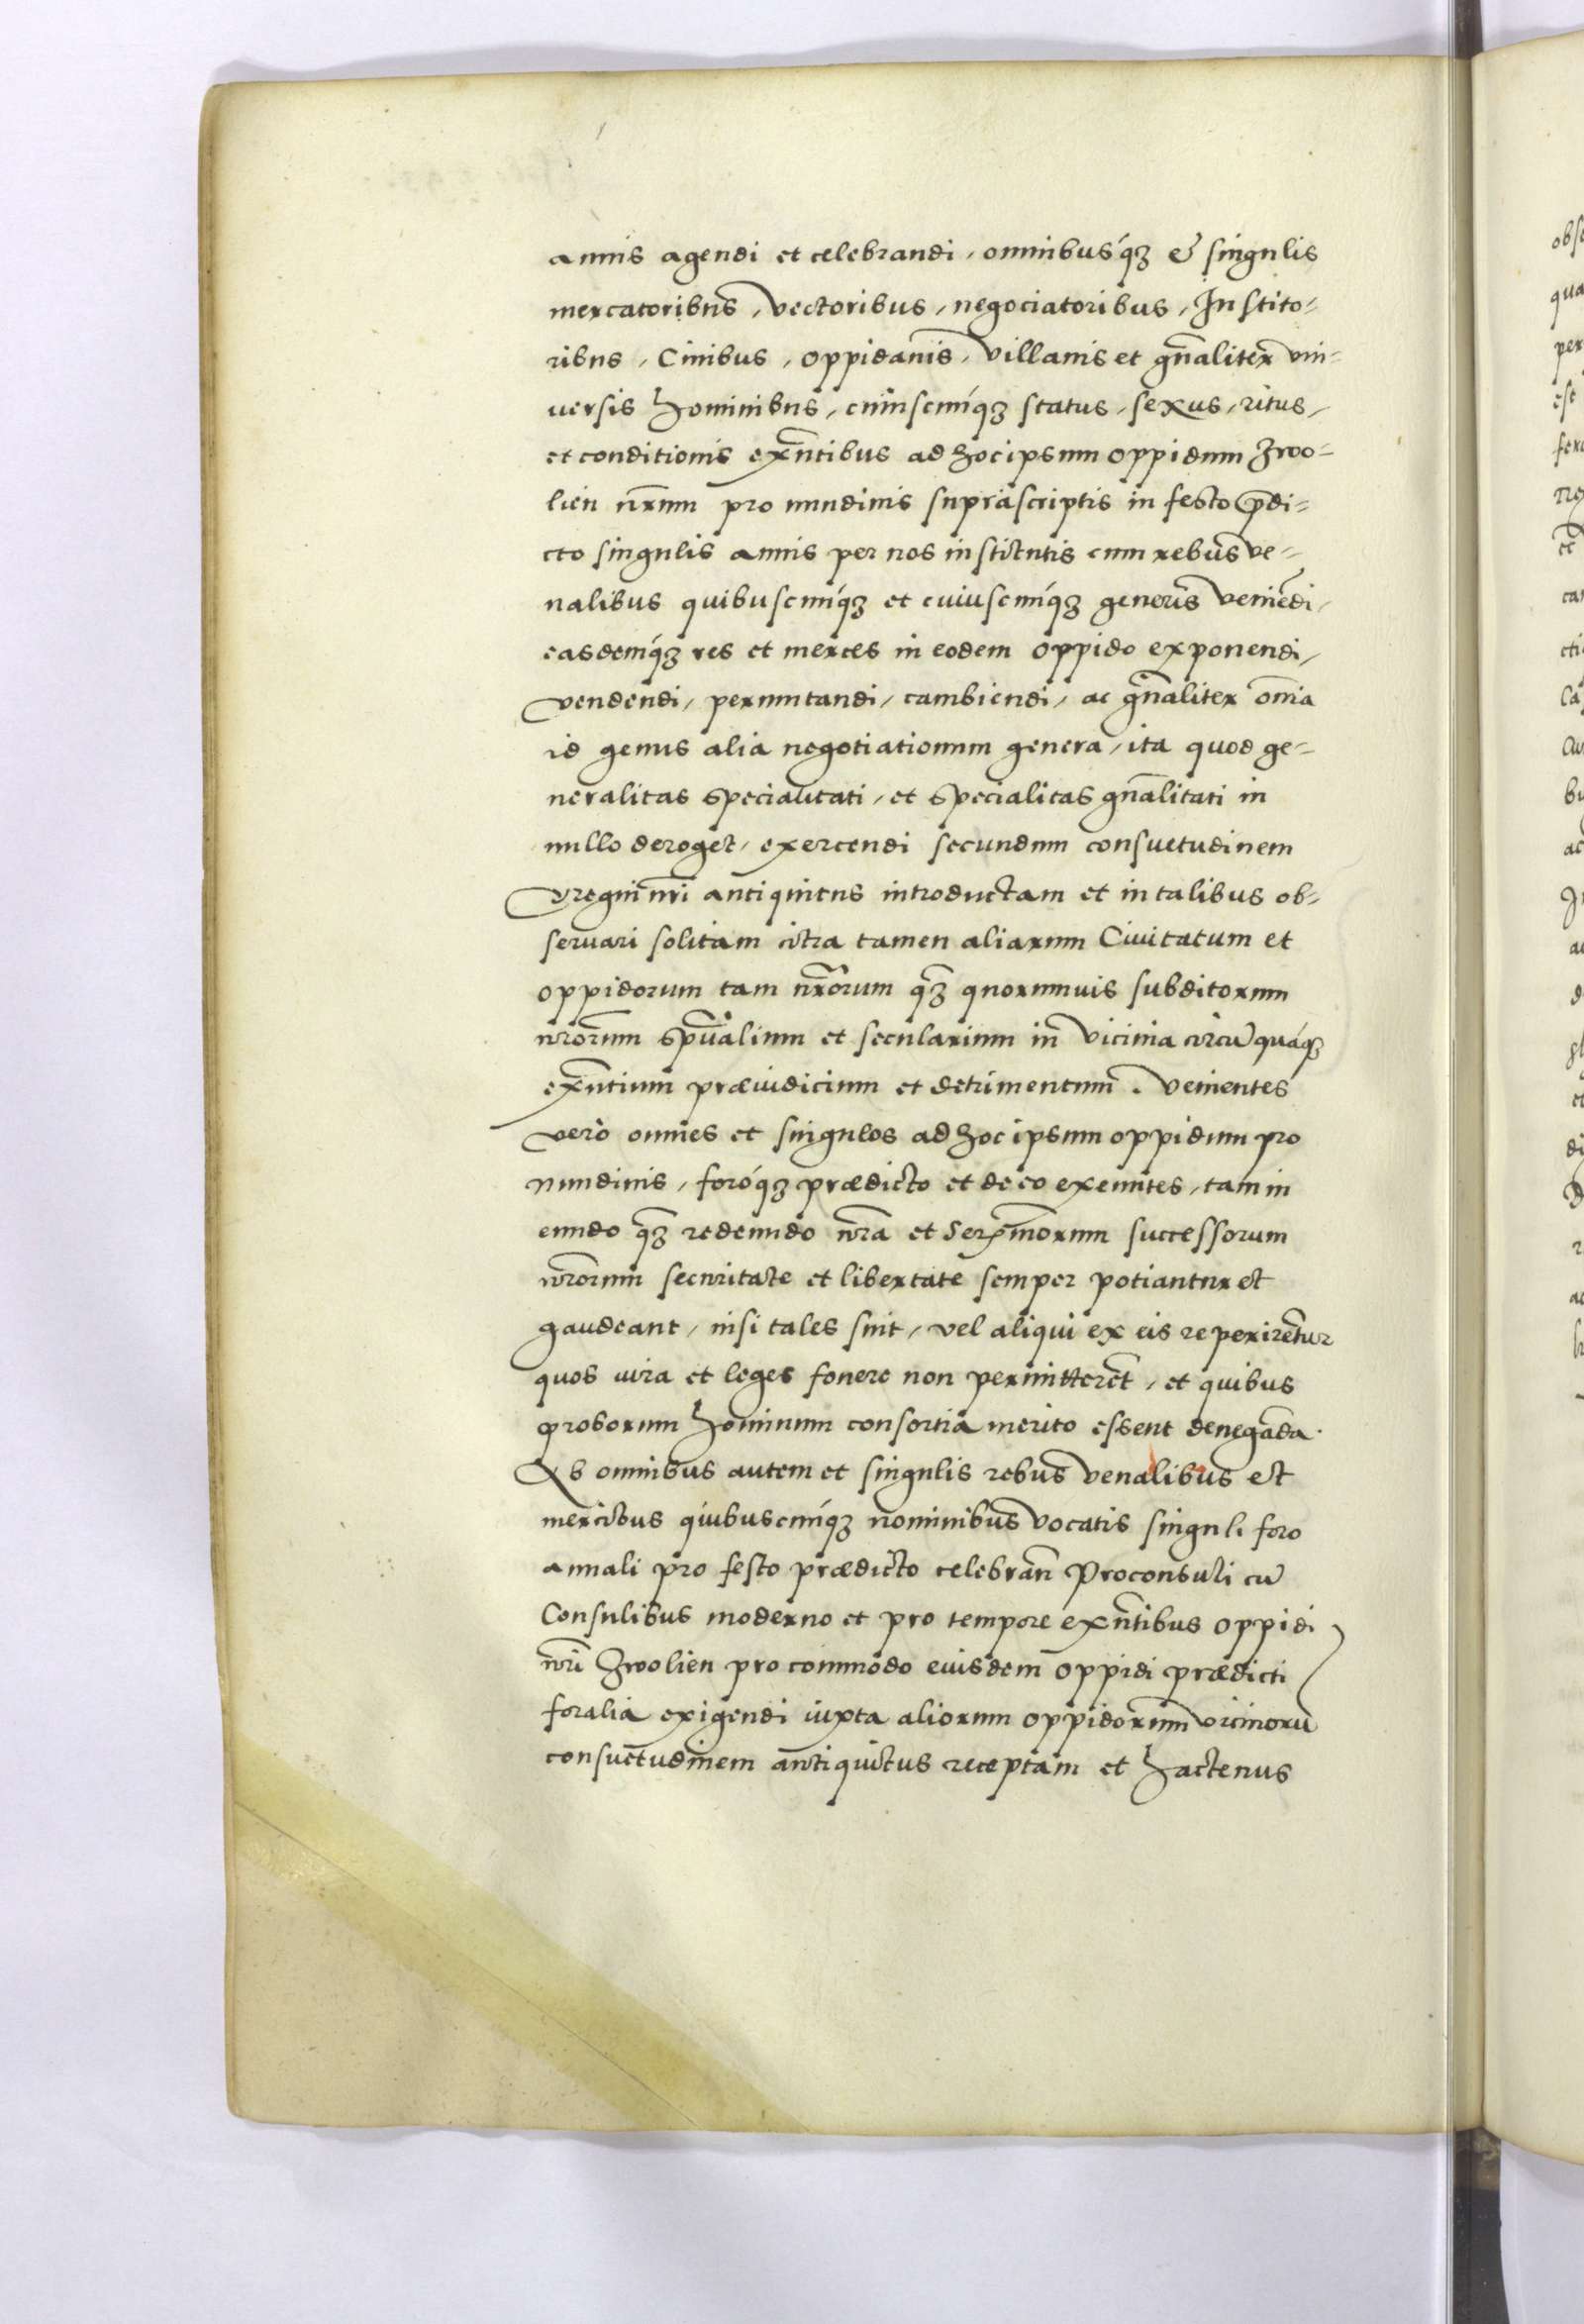 annis agendi et celebrandi, omnibusq́ꝫ & singulis
mercatoribus, vectoribus, negociatoribus, Instito-
ribus, Ciuibus, oppidanis, villanis et gn̄aliter vni-
uersis hominibus, cuiuscunq́ꝫ status, sexus, ritus,
et conditionis exn̄tibus ad hoc ipsum oppidum Zwo-
lien nr̄um pro nundinis supra scriptis in festo p̄di-
cto singulis annis per nos institutis cum rebus ve-
nalibus quibuscunq́ꝫ et cuiuscunq́ꝫ generis veniēdi,
easdemq́ꝫ res et merces in eodem oppido exponendi,
vendendi, permutandi, cambiendi, ac gn̄aliter om̄ia
id genus alia negotiationum genera, ita quod ge-
neralitas specialitati, et specialitas gn̄alitati in
nullo deroget, exercendi secundum consuetudinem
regni nr̄i antiquitus introductam et in talibus ob-
seruari solitam citra tamen aliarum Ciuitatum et
oppidorum tam nr̄orum q̄ꝫ quorumuis subditorum
nr̄orum spūalium et secularium in vicinia circū quáqꝫ
exn̄tium præiudicium et detrimentum. Venientes
vero omnes et singulos ad hoc ipsum oppidum pro
nundinis, foróqꝫ prædicto et de eo exeuntes, tam in
eundo q̄ꝫ redeundo nr̄a et Serm̄orum successorum
nr̄orum securitate et libertate semper potiantur et
gaudeant, nisi tales sint, vel aliqui ex eis reperirētur
quos iura et leges fouere non permitterēt, et quibus
proborum hominum consortia merito essent denegāda.
Ab omnibus autem et singulis rebus venalibus et
mercibus quibuscunq́ꝫ nominibus vocatis singuli foro
annali pro festo prædicto celebran̄ Proconsuli cū
Consulibus moderno et pro tempore exn̄tibus oppidi
nr̄i Zwolien pro commodo eiusdem oppidi prædicti
foralia exigendi iuxta aliorum oppidorum vicinorū
consuetudinem antiquitus receptam et hactenus